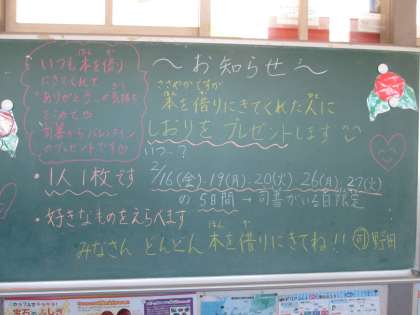 いつも本を借り
にきてくれて
"ありがとう"の気持ち
をこめて♡
司書からバレンタイン
のプレゼントです♡
ほん か
〜お知らせ〜
ささやかですが
ほん か ひと
本を借りにきてくれた人に
しおりをプレゼントします
いつ…?
2/16(金)、19(月)・20(火) 26(月)、27(火)
の 5日間 → 司書がいる日限定
・1人1枚です
・好きなものをえらべます
ほん か
みなさん どんどん 本を借りにきてね!! 司 野田